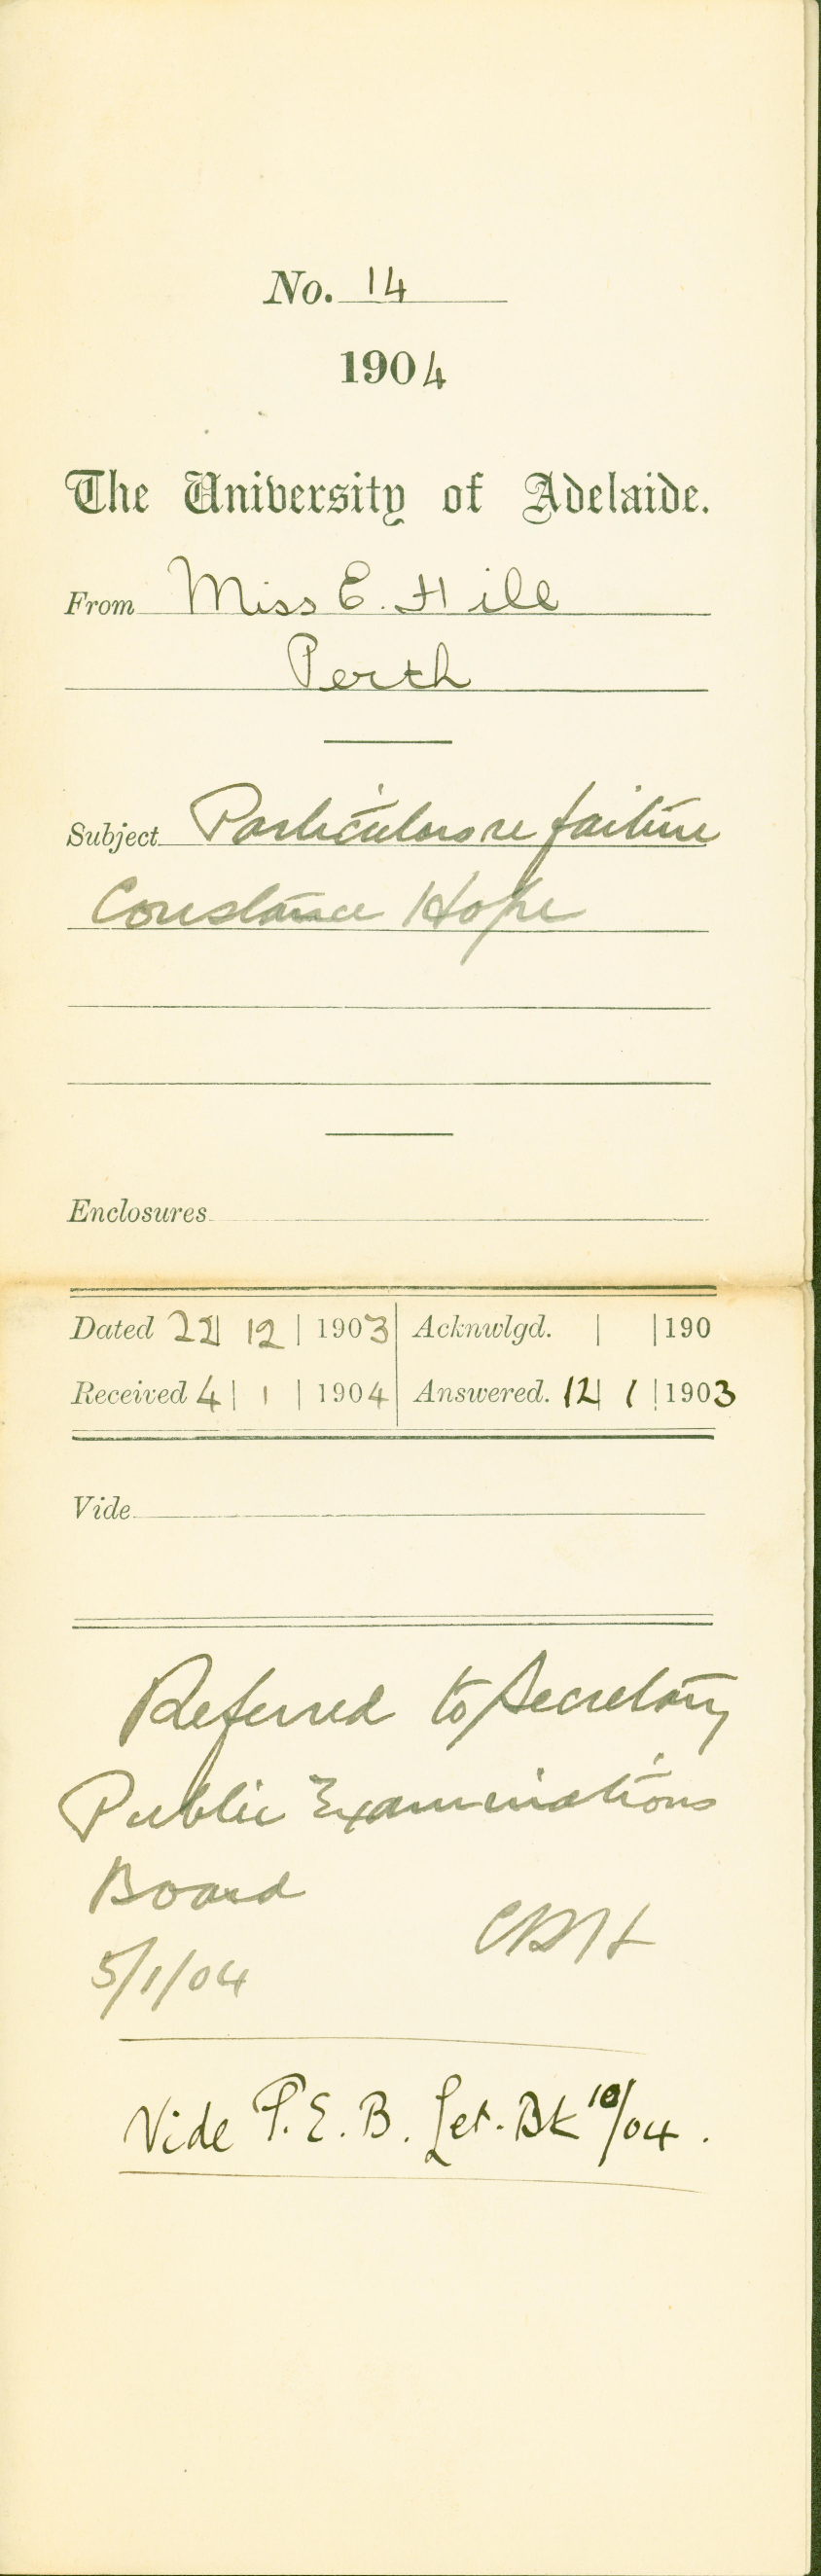 No. 14
1904
The University of Adelaide.
From Miss E. Hill
Perth
Subject Particulars re failure
Constance Hope
Enclosures
Dated 22 | 12 | 1903 Acknwlgd. | | 190
Received 4 | 1 | 1904 Answered. 12 | 1 | 1903
Vide
Referred to Secretary
Public Examinations
Board
CRH
5/1/04
Vide P.E.B. Let. Bk 10/04.